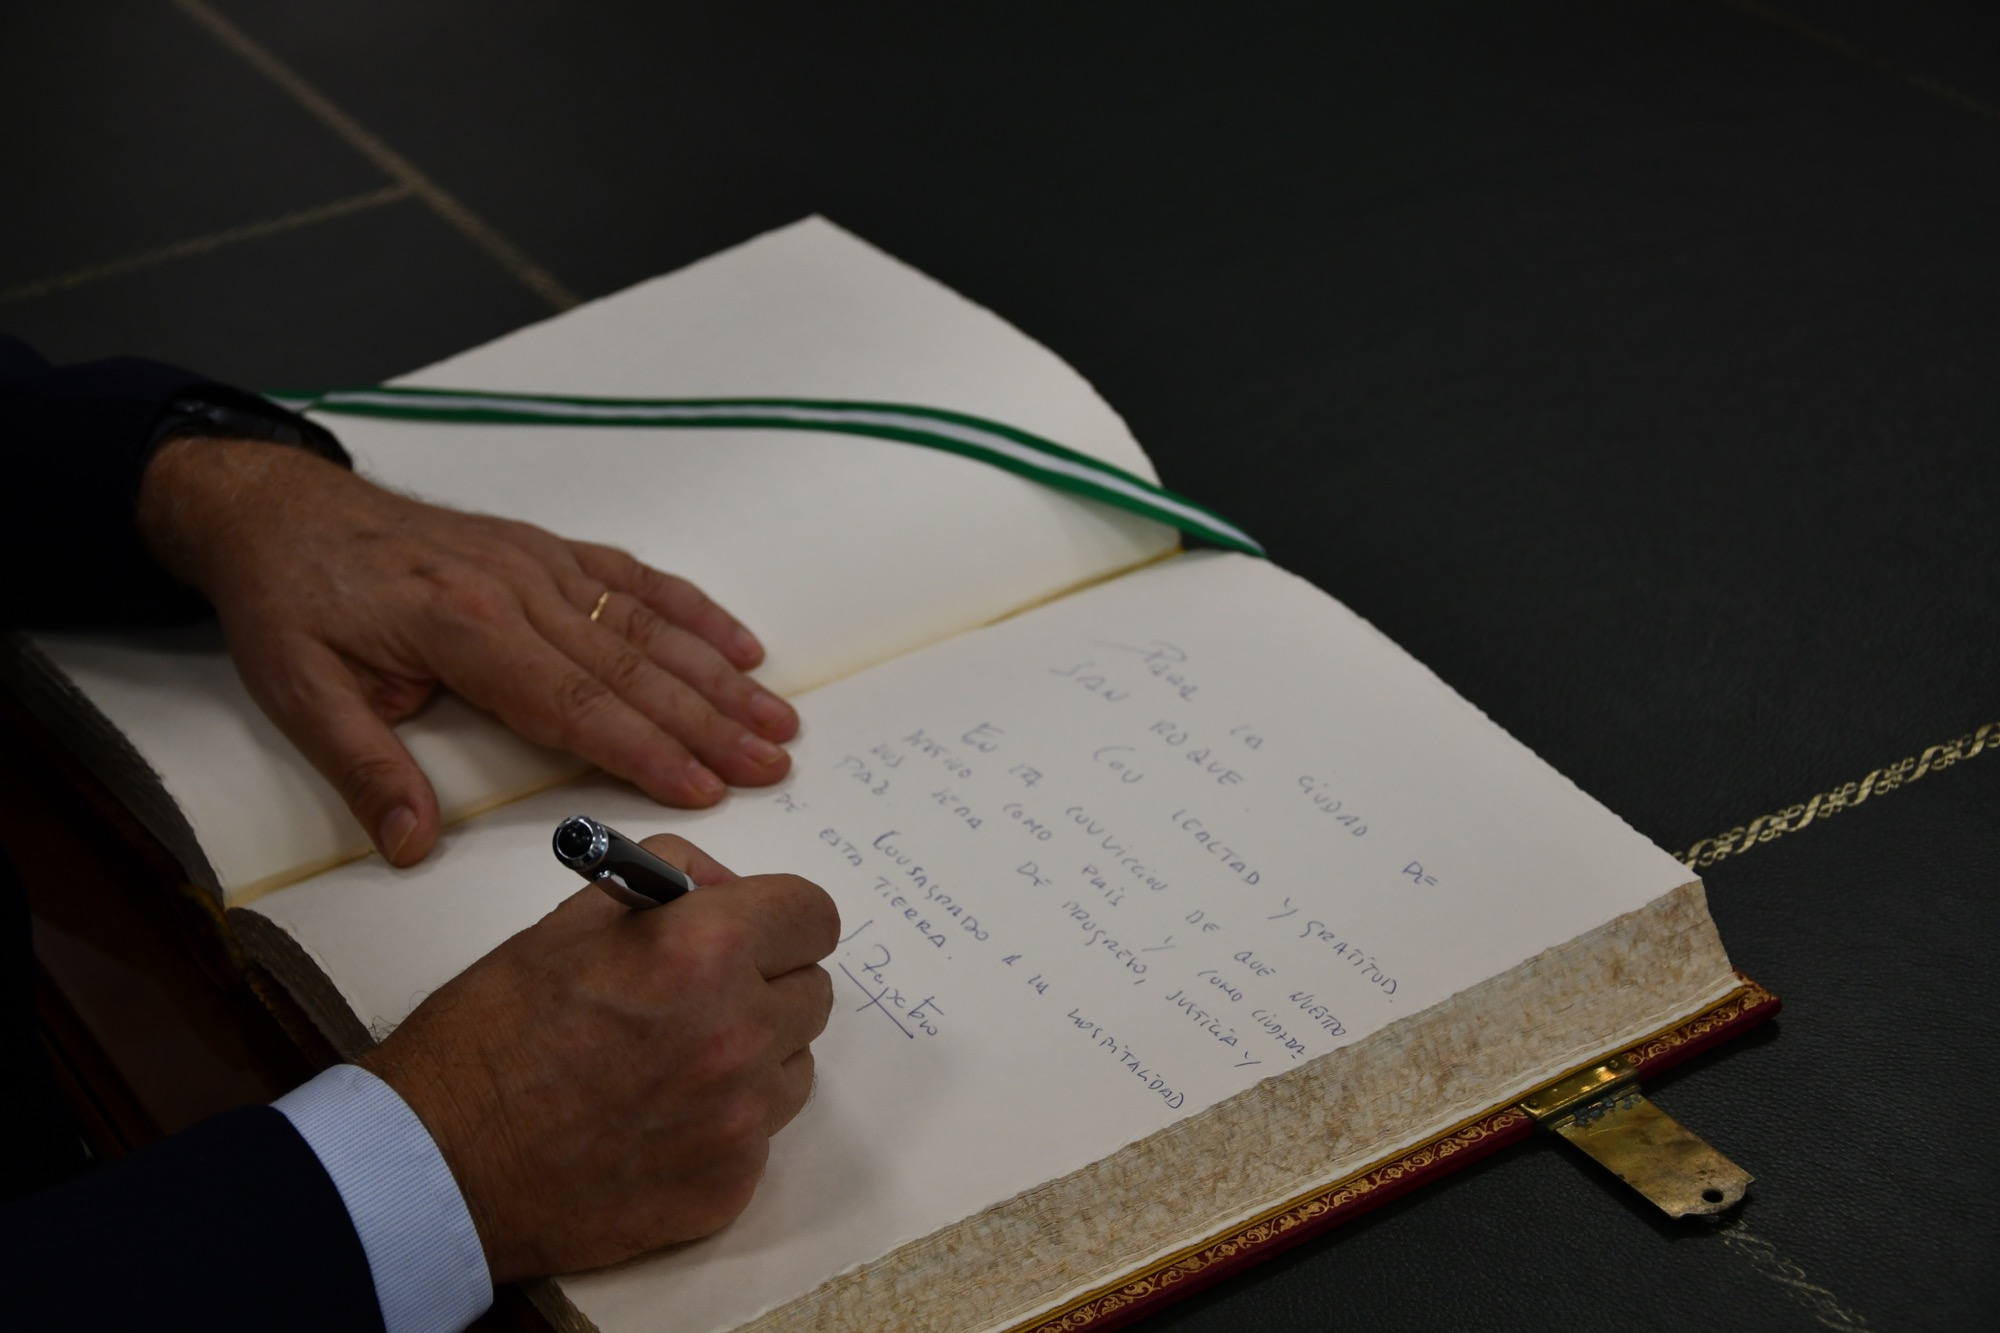 Para la ciudad de
San Roque.
Con lealtad y gratitud.
En la convicción de que nuestro
destino como país y como ciudada-
nos será de progreso, justicia y
paz.
Consagrado a la hospitalidad
de esta tierra.
J. Zapatero